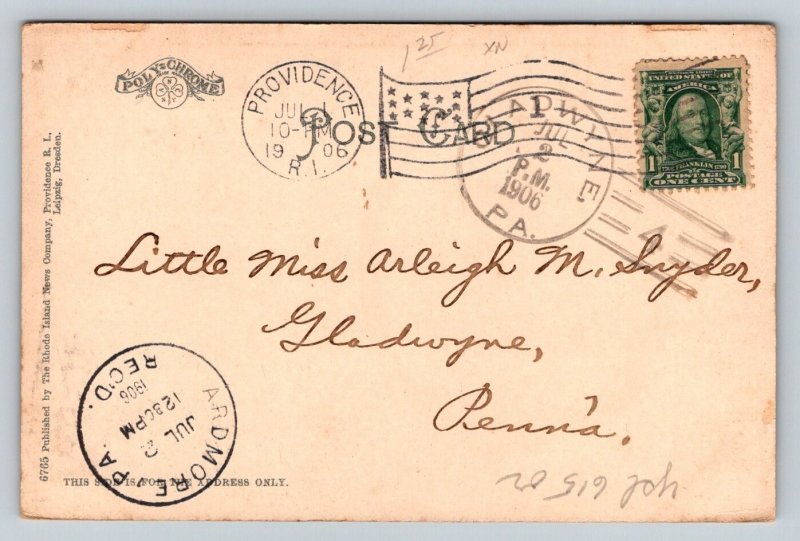 1 25 XN
POLY-CHROME
POST CARD
PROVIDENCE
JUL 1
10-PM
1906
R.I.
GLADWYNE
JUL
2
P.M.
1906
PA.
UNITED STATES OF
AMERICA
1 FRANKLIN 1
POSTAGE
ONE CENT
Little Miss Arleigh M. Snyder,
Gladwyne,
Penn'a.
ARDMORE PA.
JUL 2
1230PM
1906
REC'D.
6765 Published by The Rhode Island News Company, Providence R. I.,
Leipzig, Dresden.
THIS SIDE IS FOR THE ADDRESS ONLY.